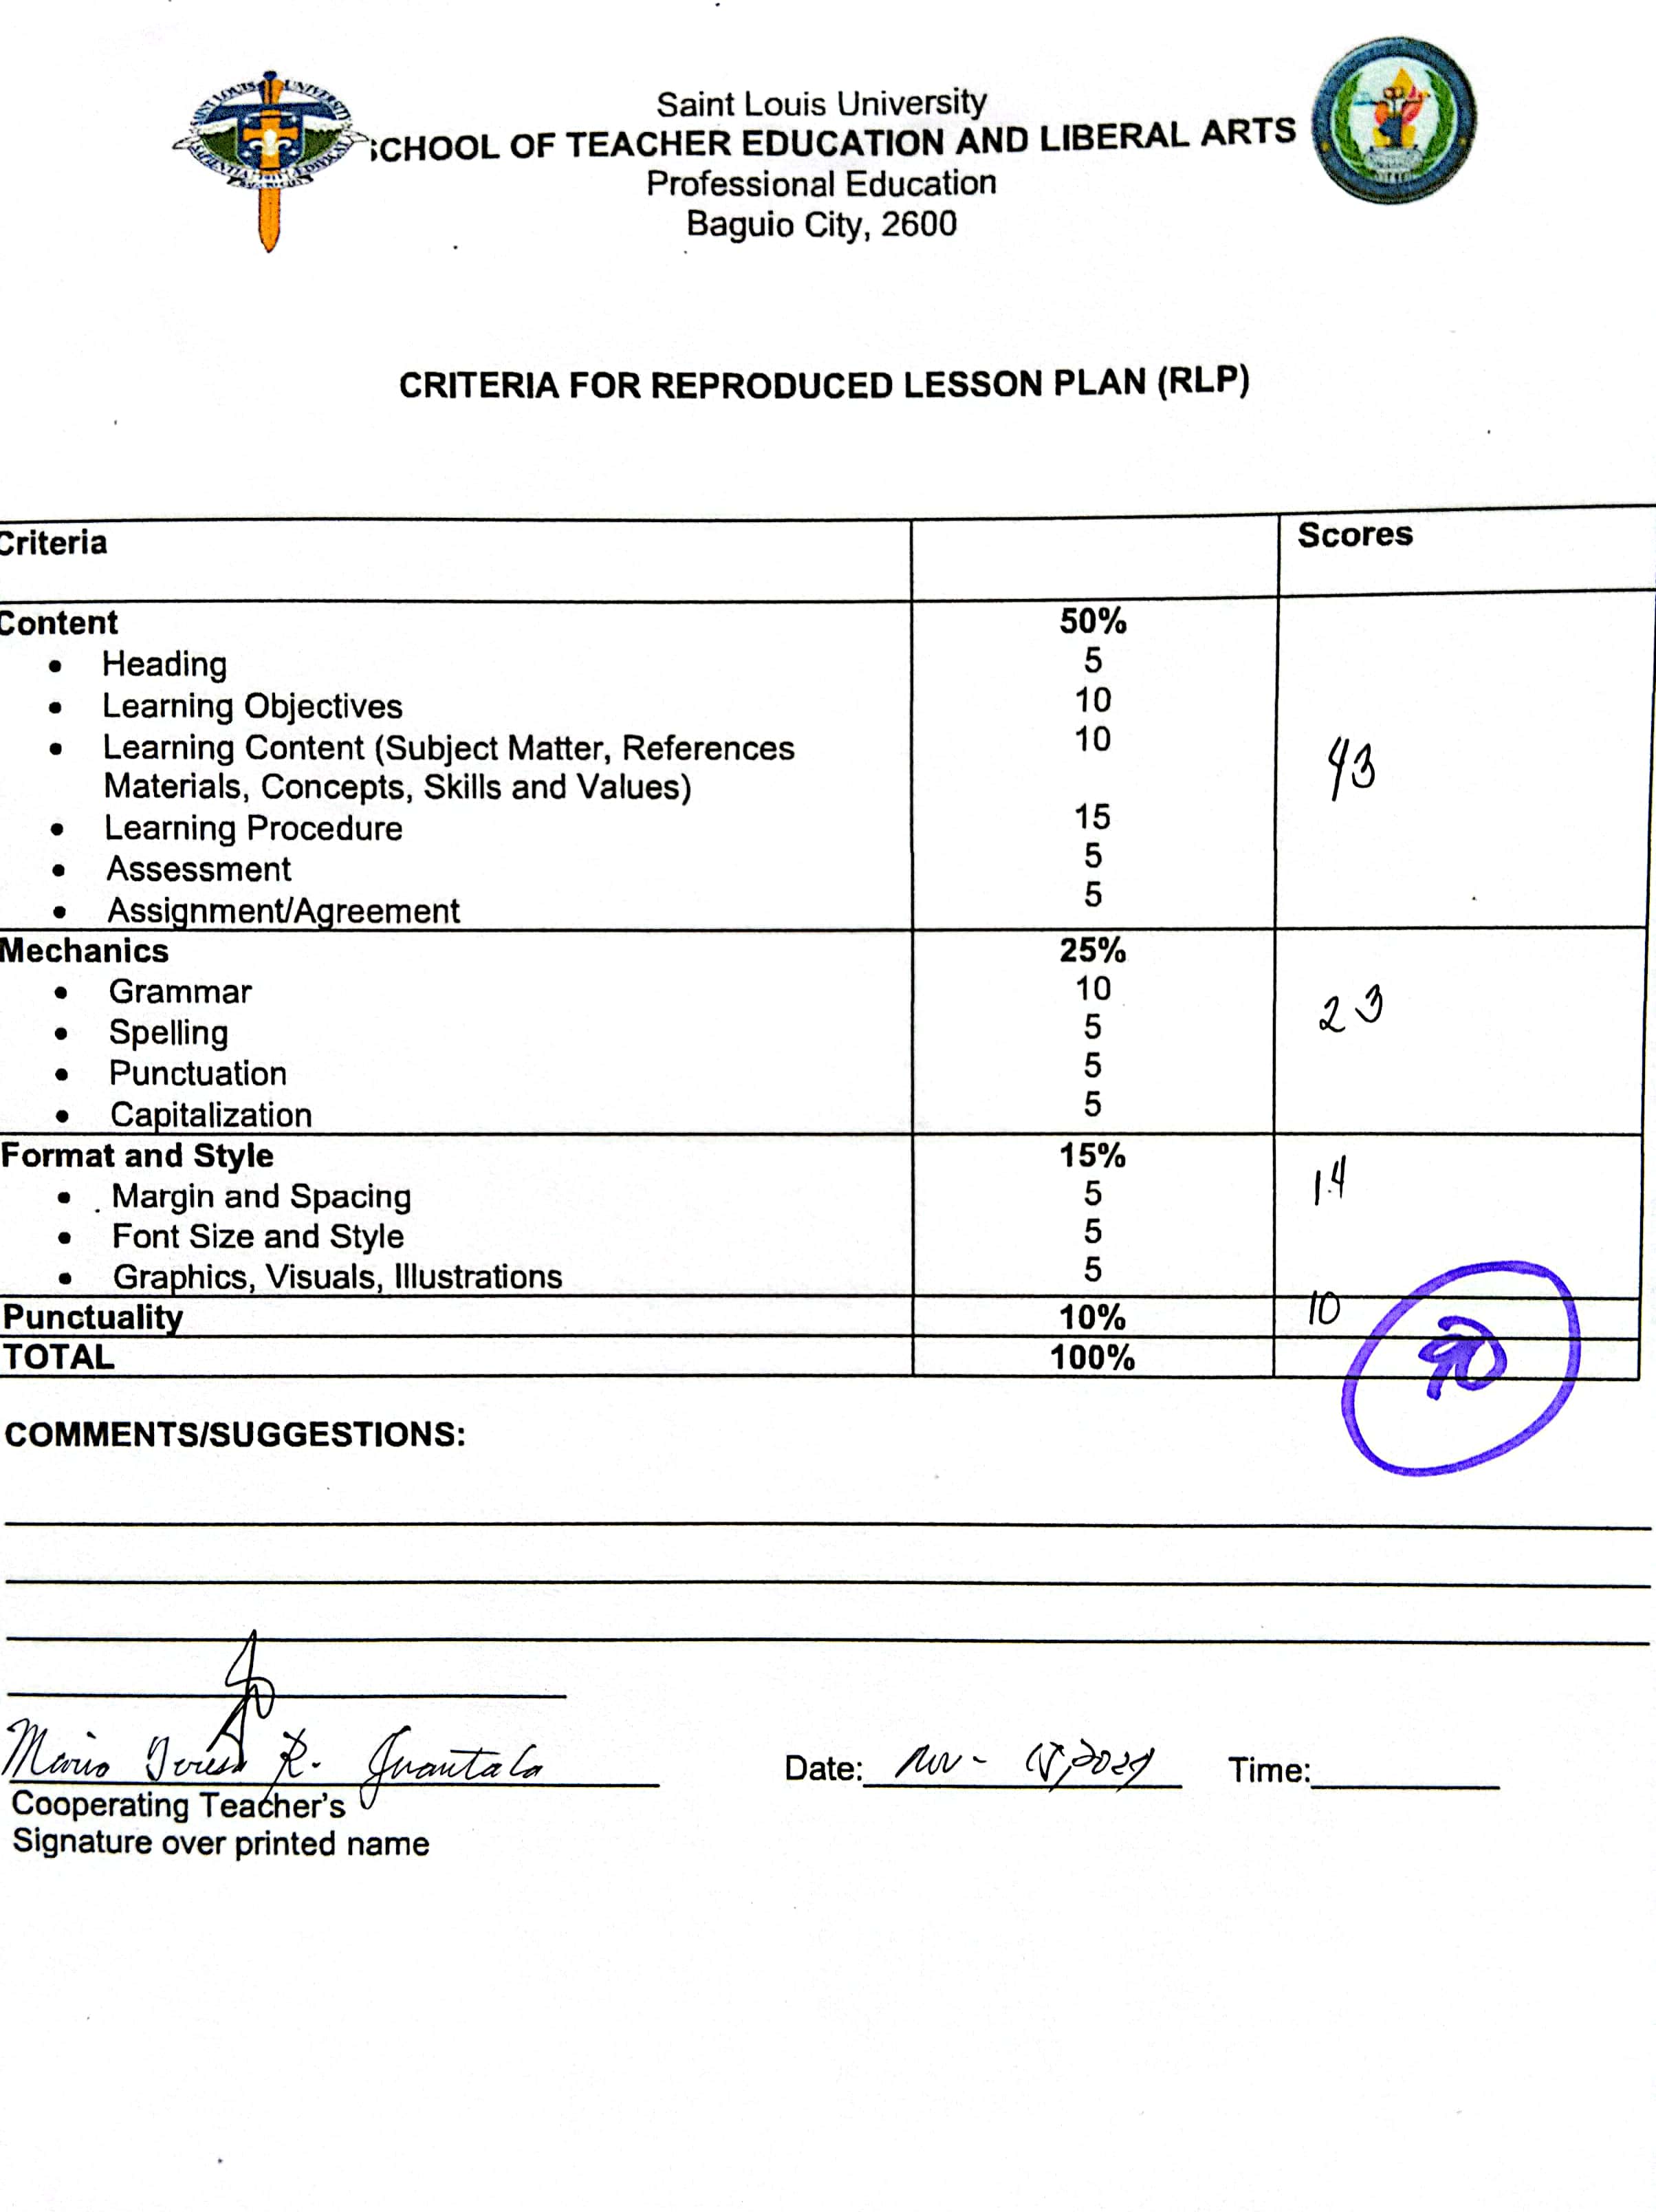 Saint Louis University
SCHOOL OF TEACHER EDUCATION AND LIBERAL ARTS
Professional Education
Baguio City, 2600
CRITERIA FOR REPRODUCED LESSON PLAN (RLP)
Criteria Scores
Content 50%
• Heading 5
• Learning Objectives 10
• Learning Content (Subject Matter, References 10
Materials, Concepts, Skills and Values)
43
• Learning Procedure 15
• Assessment 5
• Assignment/Agreement 5
Mechanics 25%
• Grammar 10
23
• Spelling 5
• Punctuation 5
• Capitalization 5
Format and Style 15%
14
• Margin and Spacing 5
• Font Size and Style 5
• Graphics, Visuals, Illustrations 5
Punctuality 10% 10
TOTAL 100% 90
COMMENTS/SUGGESTIONS:
R.
Date: Time:
Cooperating Teacher's
Signature over printed name